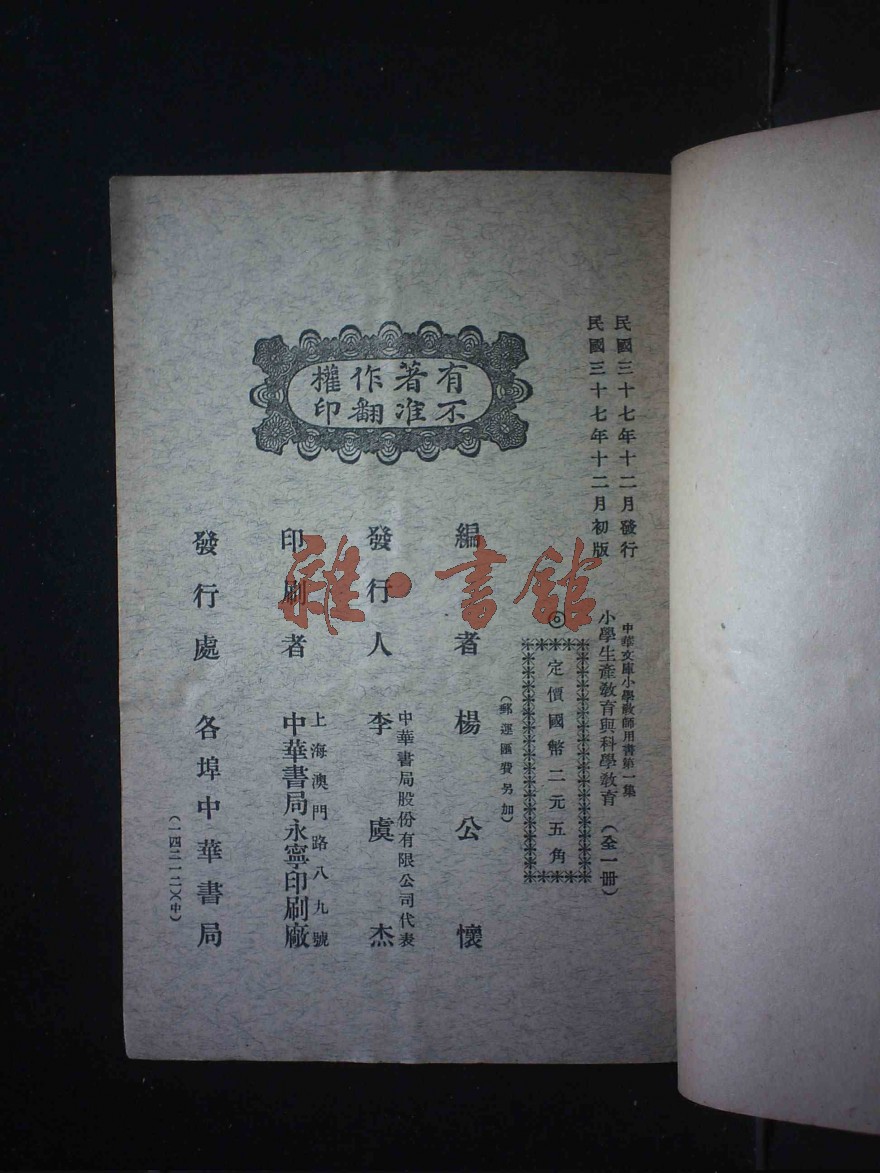 民國三十七年十二月發行
民國三十七年十二月初版
中華文庫小學教師用書第一集
小學生產教育與科學教育（全一冊）
◎定價國幣二元五角
（郵運匯費另加）
有著作權
不准翻印
編者 楊公懷
發行人 李虞杰
中華書局股份有限公司代表
印刷者 中華書局永寧印刷廠
上海澳門路八九號
發行處 各埠中華書局
（一四二一二）（中）
雜·書館